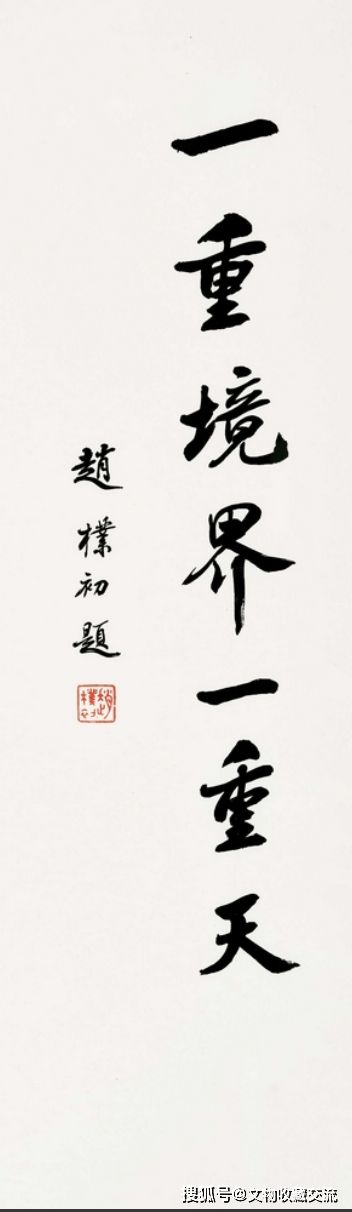 一重境界一重天
趙樸初題
趙樸初
搜狐号@文物收藏交流